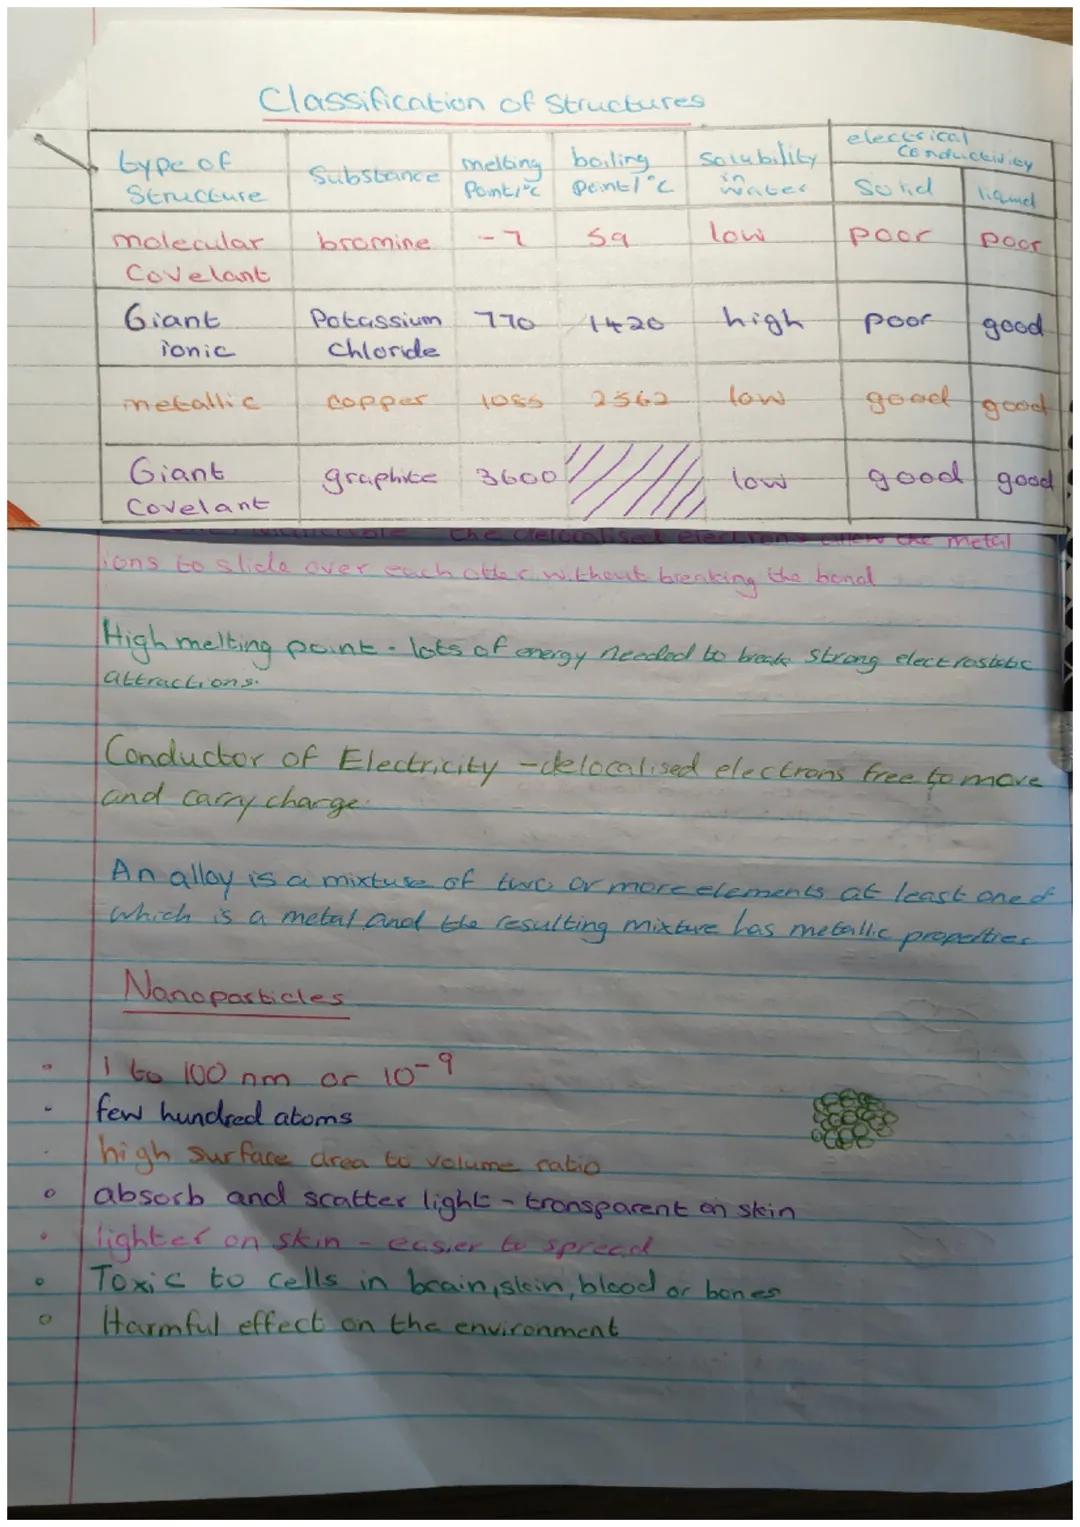 Classification of Structures
type of Structure | Substance | melting Point/°C | boiling point/°C | Solubility in water | electrical Conductivity
Solid | liquid
molecular Covelant | bromine | -7 | 59 | low | poor | poor
Giant ionic | Potassium Chloride | 770 | 1420 | high | poor | good
metallic | copper | 1085 | 2562 | low | good | good
Giant Covelant | graphite | 3600 | low | good | good
the delocalised electrons allow the metal
ions to slide over each other without breaking the bond
High melting point - lots of energy needed to break strong electrostatic
attractions.
Conductor of Electricity - delocalised electrons free to move
and carry charge.
An alloy is a mixture of two or more elements at least one of
which is a metal and the resulting mixture has metallic properties
Nanoparticles
1 to 100 nm or 10⁻⁹
few hundred atoms
high surface area to volume ratio
absorb and scatter light - transparent on skin
lighter on skin - easier to spread
Toxic to cells in brain, skin, blood or bones
Harmful effect on the environment